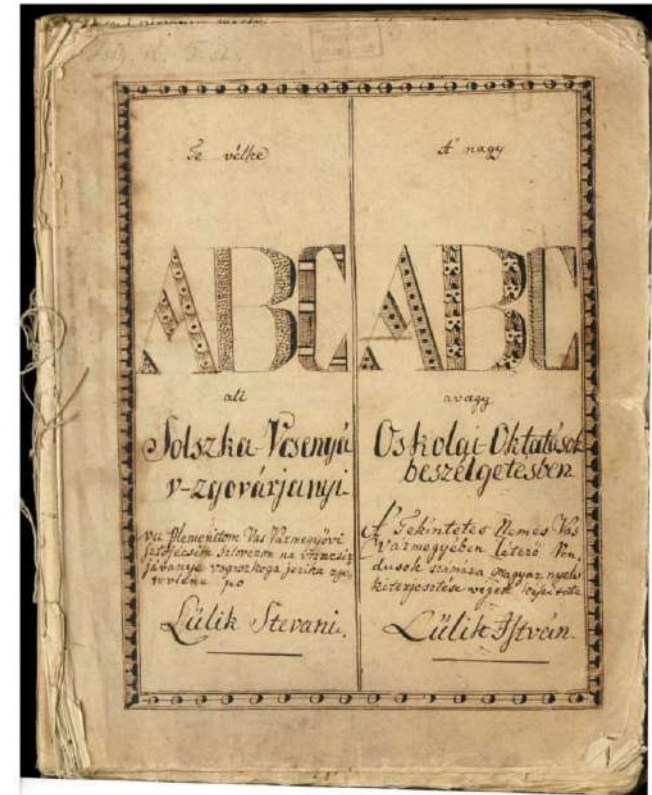 Te velke
ABC
ali
Solszka Vcsenyá
v-zgovárjanyi
vu Plemenitom Vas Vármegyövi
Sztojécsim Szlovenom na
jábanye vogrszkoga jezika
po
Lülik Stevani.
A' nagy
ABC
avagy
Oskolai Oktatások
beszélgetesben
A' Tekintetes Nemes Vas
Vármegyében létező Ven-
dusok számára magyar nyelv
kiterjesztése végett
Lülik István.